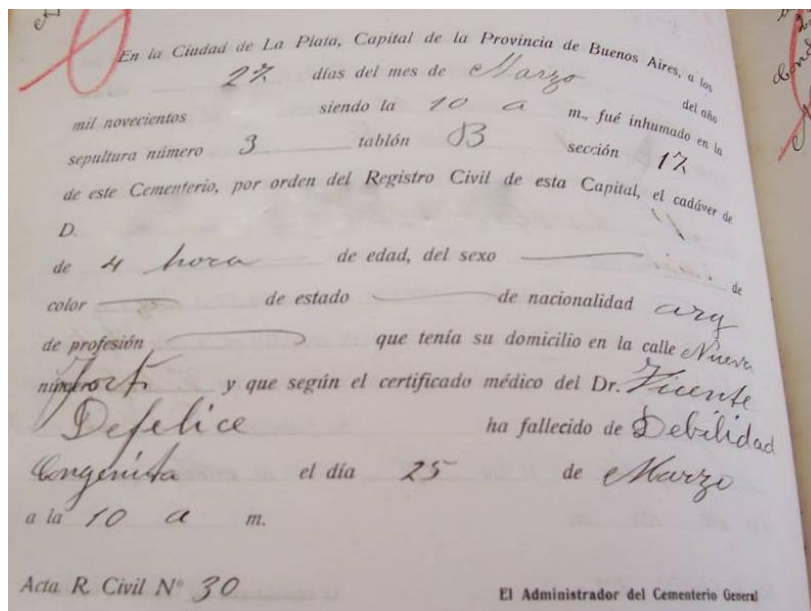 En la Ciudad de La Plata, Capital de la Provincia de Buenos Aires, a los
27 días del mes de Marzo del año
mil novecientos siendo la 10 a m., fué inhumado en la
sepultura número 3 tablón B sección 17
de este Cementerio, por orden del Registro Civil de esta Capital, el cadáver de
D.
de 4 hora de edad, del sexo de
color de estado de nacionalidad arg
de profesión que tenía su domicilio en la calle Nueva
número York y que según el certificado médico del Dr. Vicente
Defelice ha fallecido de Debilidad
Congenita el día 25 de Marzo
a la 10 a m.
Acta R. Civil Nº 30 El Administrador del Cementerio General